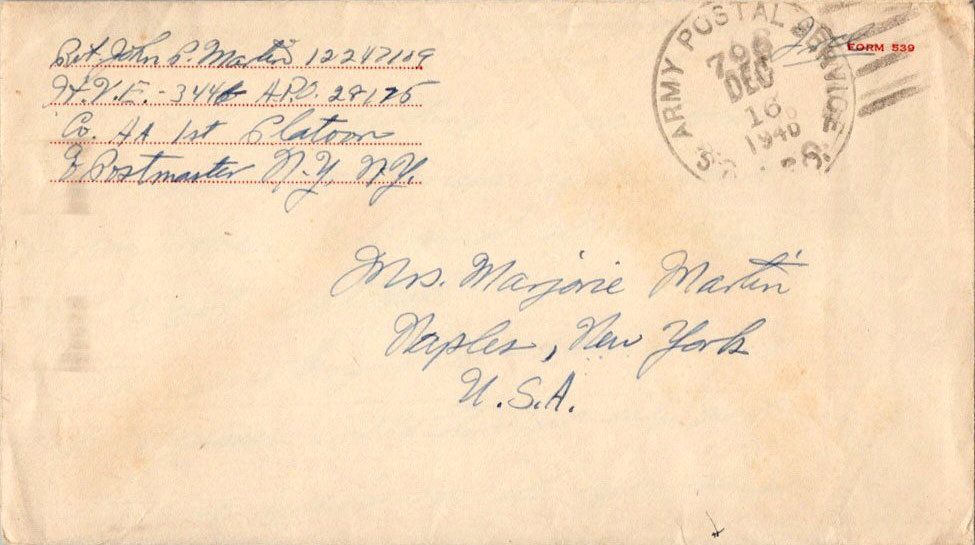 Pvt. John P. Martin 12247109
H.V.E. - 344 A.P.O. 28175
Co. AA 1st Platoon
Postmaster N.Y. N.Y.
ARMY POSTAL SERVICE
DEC
16
194
FORM 539
Mrs. Marjorie Martin
Naples, New York
U.S.A.